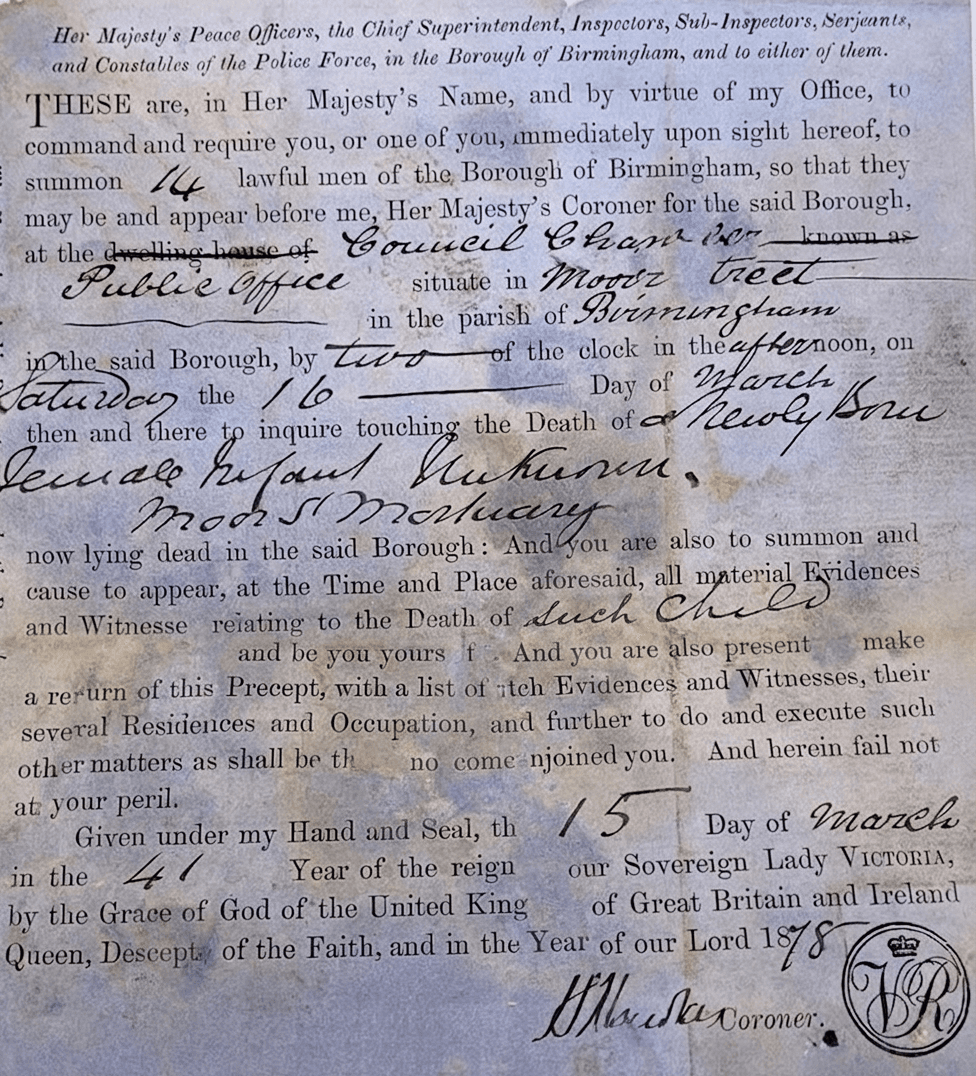 Her Majesty's Peace Officers, the Chief Superintendent, Inspectors, Sub-Inspectors, Serjeants,
and Constables of the Police Force, in the Borough of Birmingham, and to either of them.
THESE are, in Her Majesty's Name, and by virtue of my Office, to
command and require you, or one of you, immediately upon sight hereof, to
summon 14 lawful men of the Borough of Birmingham, so that they
may be and appear before me, Her Majesty's Coroner for the said Borough,
at the dwelling-house of Council Chamber known as
Public Office situate in Moor treet
in the parish of Birmingham
in the said Borough, by two of the clock in the afternoon, on
Saturday the 16 Day of March
then and there to inquire touching the Death of a Newly Born
Female Infant Unknown.
Moor St Mortuary
now lying dead in the said Borough: And you are also to summon and
cause to appear, at the Time and Place aforesaid, all material Evidences
and Witnesse relating to the Death of such Child
and be you yours f . And you are also present make
a return of this Precept, with a list of Evidences and Witnesses, their
several Residences and Occupation, and further to do and execute such
other matters as shall be th no come njoined you. And herein fail not
at your peril.
Given under my Hand and Seal, th 15 Day of March
in the 41 Year of the reign our Sovereign Lady VICTORIA,
by the Grace of God of the United King of Great Britain and Ireland
Queen, Descept of the Faith, and in the Year of our Lord 1878
Coroner.
VR